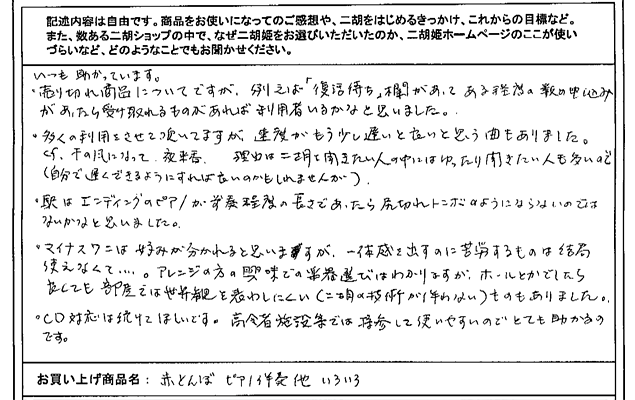 記述内容は自由です。商品をお使いになってのご感想や、二胡をはじめるきっかけ、これからの目標など。
また、数ある二胡ショップの中で、なぜ二胡姫をお選びいただいたのか、二胡姫ホームページのここが使い
づらいなど、どのようなことでもお聞かせください。
いつも助かっています。
・売り切れ商品についてですが、例えば「復活待ち」欄があって ある程度の数の申し込み
があったら受け取れるものがあれば利用者いるかなと思いました。
・多くの利用をさせて頂いてますが、速度がもう少し遅いと良いと思う曲もありました。
千の風になって、夜来香 理由は二胡を聞きたい人の中にはゆったり聞きたい人も多いので
(自分で遅くできるようにすれば良いのかもしれませんが)
・駅はエンディングのピアノが前奏程度の長さであったら尻切れトンボのようにならないのでは
ないかなと思いました。
・マイナスワンは好みが分かれると思いますが、一体感を出すのに苦労するものは結局
使えなくて…。アレンジの方の興味での楽器選びはわかりますが、ホールとかでしたら
良くても部屋では世界観を表わしにくい(二胡の技術が伴わない)ものもありました。
・CD対応は続けてほしいです。高令者施設等では持参して使いやすいのでとても助かるの
です。
お買い上げ商品名: 赤とんぼ ピアノ伴奏 他 いろいろ